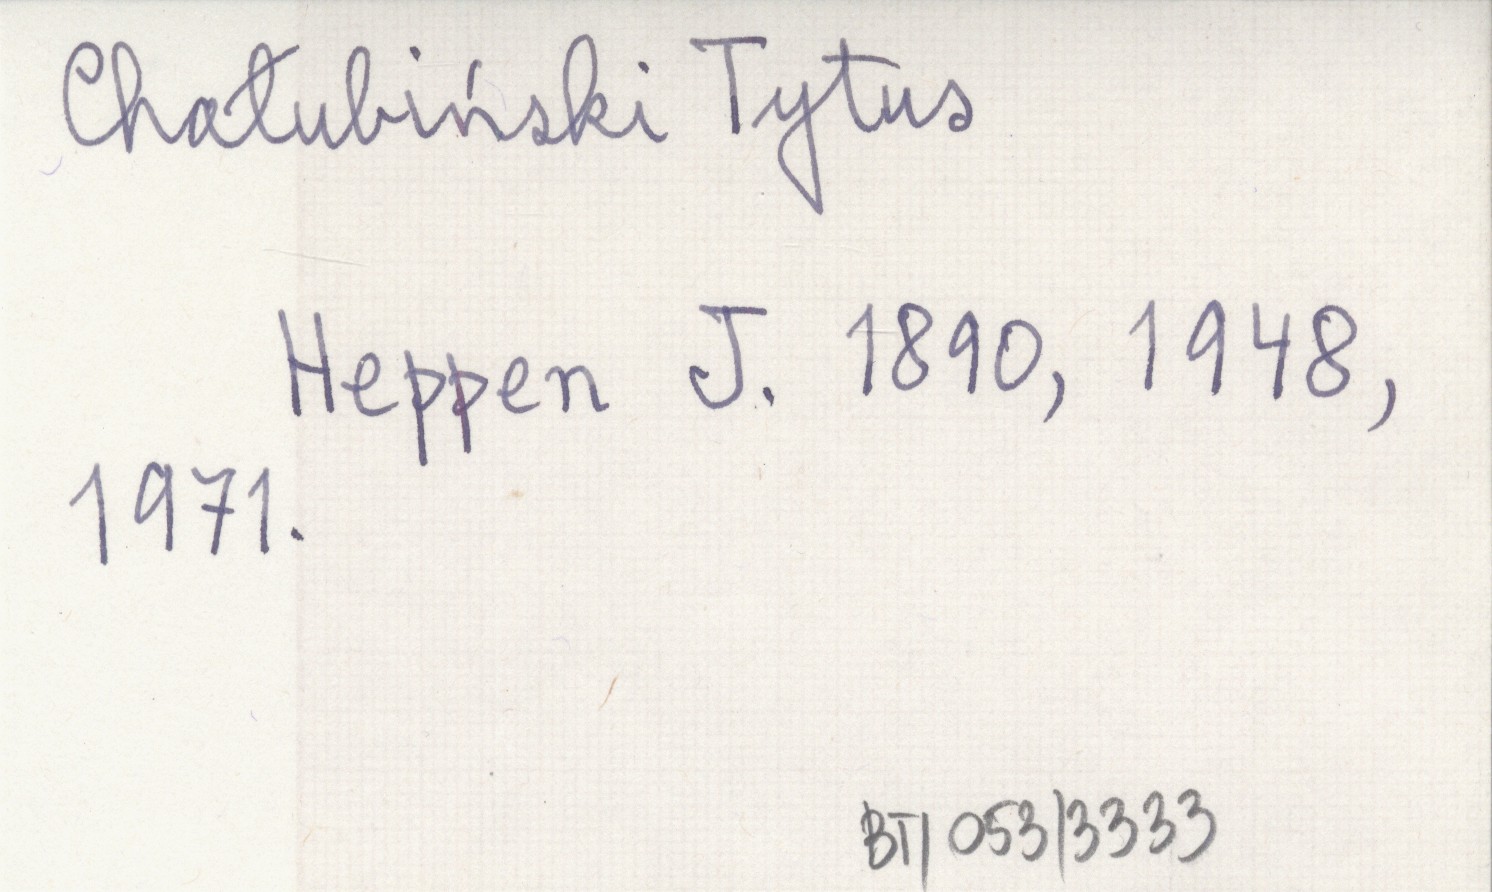 Chałubiński Tytus
Heppen J. 1890, 1948,
1971.
BT/053/3333